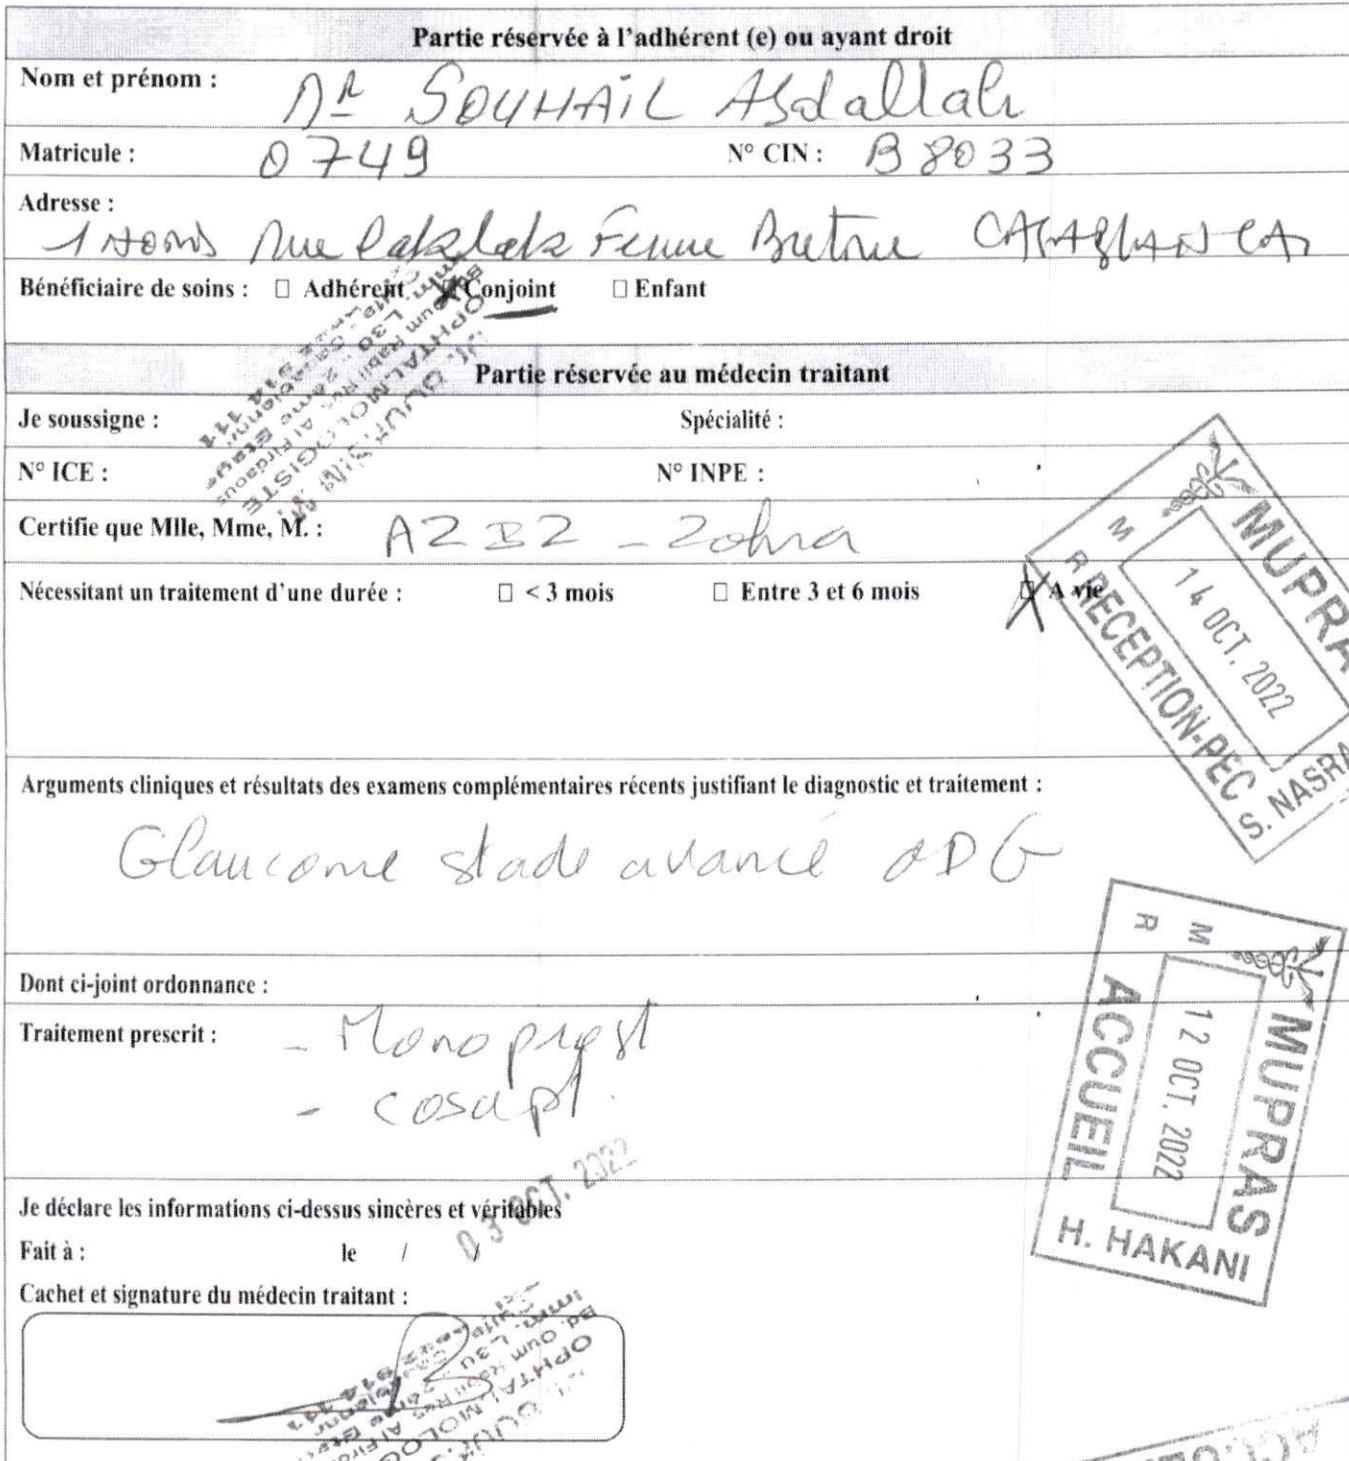 Partie réservée à l'adhérent (e) ou ayant droit
Nom et prénom : Mr SOUHAIL Abdallah
Matricule : 0749 N° CIN : B 8033
Adresse :
1 Rue Ferme Bretonne CASABLANCA
Bénéficiaire de soins : □ Adhérent ☒ Conjoint □ Enfant
OPHTALMOLOGISTE
Partie réservée au médecin traitant
Je soussigne : Spécialité :
N° ICE : N° INPE :
Certifie que Mlle, Mme, M. : AZIZ - Zohra
Nécessitant un traitement d'une durée : □ < 3 mois □ Entre 3 et 6 mois ☒ A vie
MUPRAS
14 OCT. 2022
RECEPTION-PEC
Arguments cliniques et résultats des examens complémentaires récents justifiant le diagnostic et traitement :
Glaucome stade avancé ODG
Dont ci-joint ordonnance :
Traitement prescrit : - Monoprost
- cosopt.
M R
MUPRAS
12 OCT. 2022
ACCUEIL
H. HAKANI
Je déclare les informations ci-dessus sincères et véritables
Fait à : le / / 03 OCT. 2022
Cachet et signature du médecin traitant :